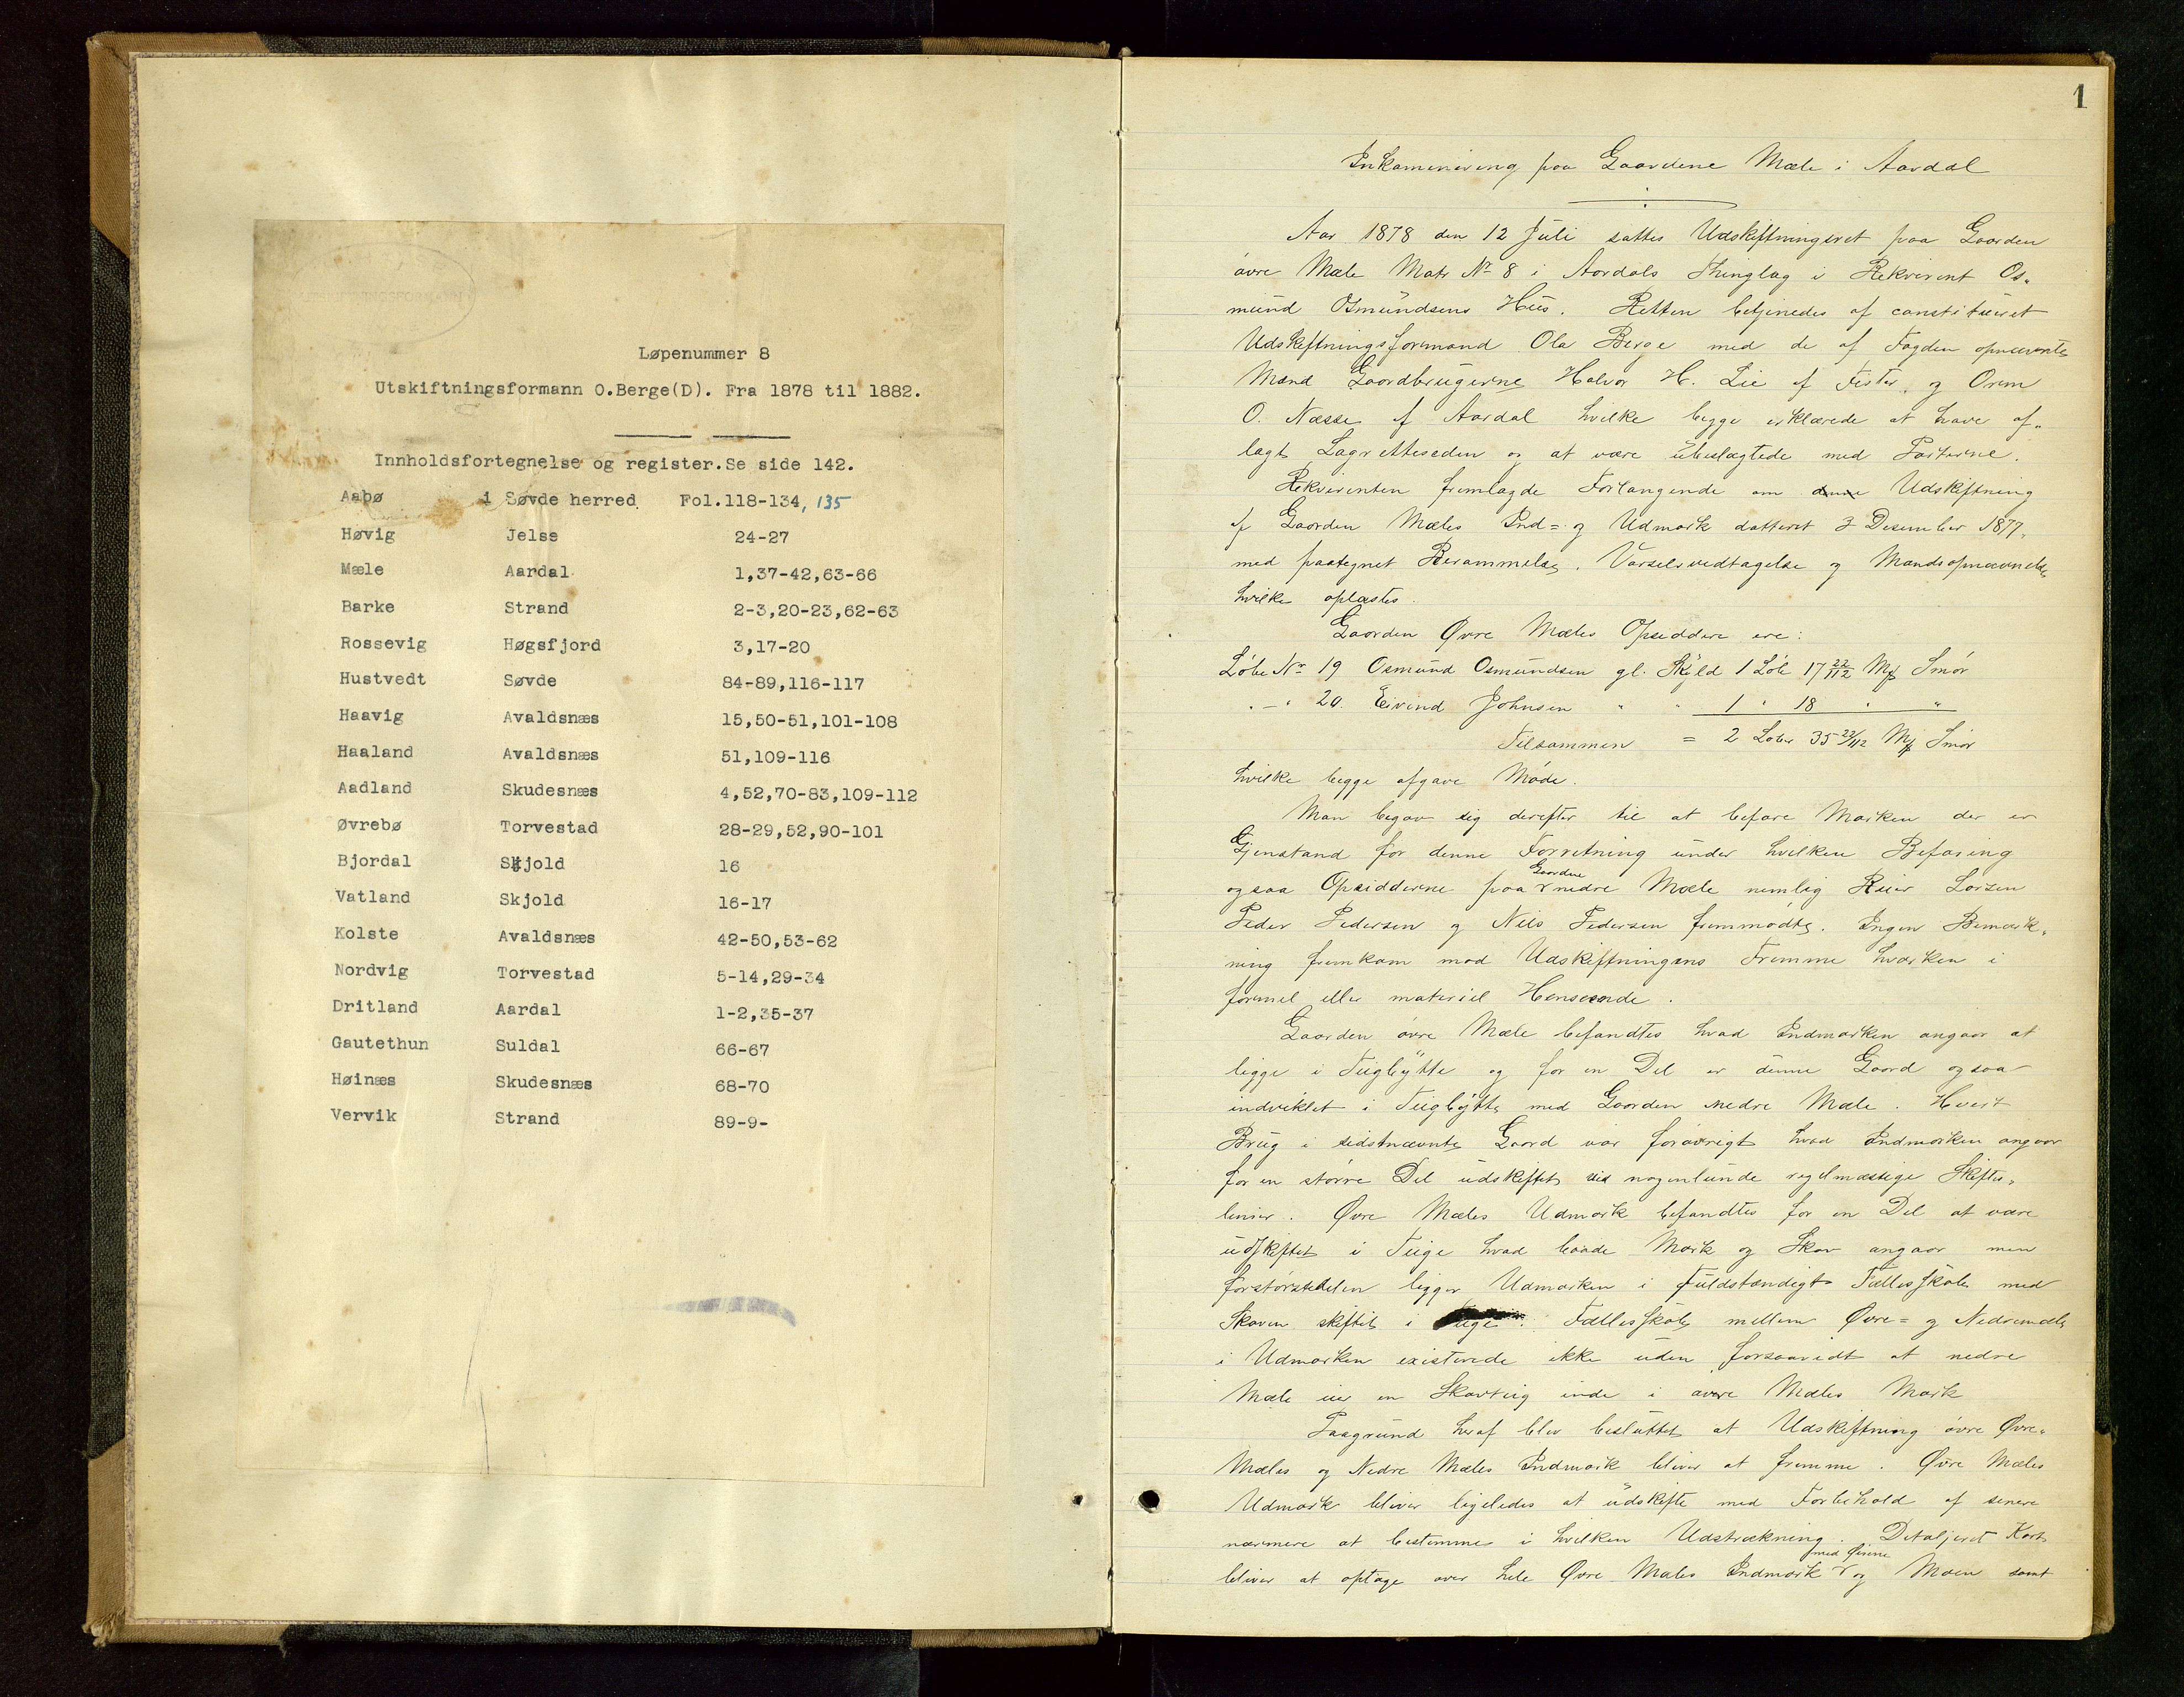 Løpenummer 8
Utskiftningsformann O.Berge(D). Fra 1878 til 1882.
Innholdsfortegnelse og register.Se side 142.
Aabø i Søvde herred Fol.118-134, 135
Høvig Jelse 24-27
Mæle Aardal 1,37-42,63-66
Barke Strand 2-3,20-23,62-63
Rossevig Høgsfjord 3,17-20
Hustvedt Søvde 84-89,116-117
Haavig Avaldsnæs 15,50-51,101-108
Haaland Avaldsnæs 51,109-116
Aadland Skudesnæs 4,52,70-83,109-112
Øvrebø Torvestad 28-29,52,90-101
Bjordal Skjold 16
Vatland Skjold 16-17
Kolste Avaldsnæs 42-50,53-62
Nordvig Torvestad 5-14,29-34
Dritland Aardal 1-2,35-37
Gautethun Suldal 66-67
Høinæs Skudesnæs 68-70
Vervik Strand 89-9-
1
Inkaminering paa Gaardene Mæle i Aardal
Aar 1878 den 12 Juli sattes Udskiftningsret paa Gaarden
øvre Mæle Matr № 8 i Aardals Thinglag i Rekvirent Os-
mund Osmundsens Hus. Retten betjenedes af constitueret
Udskiftningsformand Ola Berge med de af Fogden opnævnte
Mænd Gaardbrugerne Halvor H. Lie af Fister og Orm
O. Næsse af Aardal hvilke begge erklærede at have af-
lagt Lagretteseden og at være ubeslægtede med Parterne.
Rekvirenten fremlagde Forlangende om denne Udskiftning
af Gaarden Mæles Ind= og Udmark datteret 3 Desember 1877,
med paategnet Berammelse, Varselsvedtagelse og Mandsopnævnelse
hvilke oplæstes.
Gaarden Øvre Mæles Opsiddere ere:
Løbe Nr 19 Osmund Osmundsen gl. Skyld 1 Løb 17 22/112 Mk Smør
" — " 20. Eivind Johnsen " " 1 " 18 " "
Tilsammen = 2 Løber 35 22/112 Mk Smør
hvilke begge afgave Møde.
Man begav sig derefter til at befare Marken der er
Gjenstand for denne Forretning under hvilken Befaring
ogsaa Opsidderne paa Gaarden nedre Mæle nemlig Reier Larsen
Peder Pedersen og Nils Pedersen fremmødte. Ingen Bemærk-
ning fremkom mod Udskiftningens Fremme hværken i
formel eller materiel Henseende.
Gaarden øvre Mæle befandtes hvad Indmarken angaar at
ligge i Teigbytte og for en Del er denne Gaard ogsaa
indviklet i Teigbytte med Gaarden nedre Mæle. Hvert
Brug i sidstnævnte Gaard var forøvrigt hvad Indmarken angaar
for en større Del udskiftet ved nogenlunde regelmæssige Skifte-
linier. Øvre Mæles Udmark befandtes for en Del at være
udskiftet i Teige hvad baade Mark og Skov angaar men
forstørstedelen ligger Udmarken i fuldstændigt Fællesskab med
Skoven skiftet i Teige. Fællesskab mellem Øvre= og Nedremæle
i Udmarken existerede ikke uden forsaavidt at nedre
Mæle eier en Skovteig inde i øvre Mæles Mark
Paagrund heraf blev besluttet at Udskiftning øvre Øvre-
Mæles og Nedre Mæles Indmark bliver at fremme. Øvre Mæles
Udmark bliver ligeledes at udskifte med Forbehold af senere
nærmere at bestemme i hvilken Udstrækning. Detaljeret Kart
bliver at optage over hele Øvre Mæles Indmark med Øerne og Moen samt